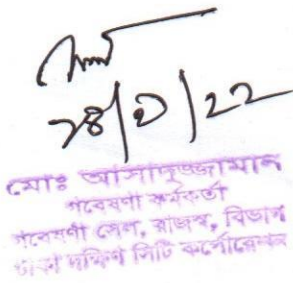 ২৪/৩/২২
মোঃ আসাদুজ্জামান
গবেষণা কর্মকর্তা
গবেষণা সেল, রাজস্ব, বিভাগ
ঢাকা দক্ষিণ সিটি কর্পোরেশন